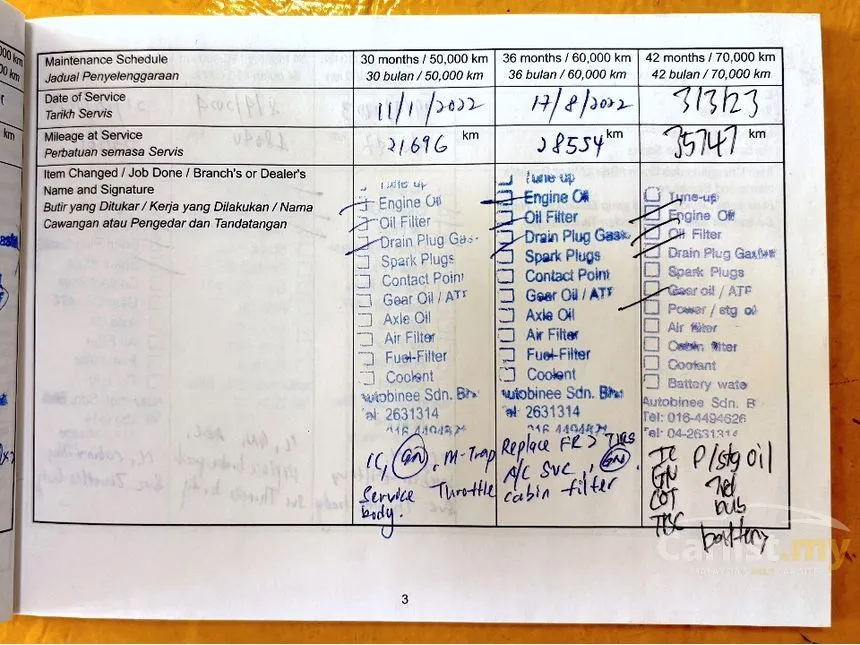 Maintenance Schedule
Jadual Penyelenggaraan
30 months / 50,000 km
30 bulan / 50,000 km
36 months / 60,000 km
36 bulan / 60,000 km
42 months / 70,000 km
42 bulan / 70,000 km
Date of Service
Tarikh Servis
11/1/2022
17/8/2022
3/3/23
Mileage at Service
Perbatuan semasa Servis
21696 km
28554 km
35747 km
Item Changed / Job Done / Branch's or Dealer's
Name and Signature
Butir yang Ditukar / Kerja yang Dilakukan / Nama
Cawangan atau Pengedar dan Tandatangan
Tune up
Engine Oil
Oil Filter
Drain Plug Gas
Spark Plugs
Contact Point
Gear Oil / ATF
Axle Oil
Air Filter
Fuel-Filter
Coolent
Autobinee Sdn. Bh
Tel: 2631314
016 4494626
IC, GN, M-Trap
Service Throttle
body.
Tune up
Engine Oil
Oil Filter
Drain Plug Gask
Spark Plugs
Contact Point
Gear Oil / ATF
Axle Oil
Air Filter
Fuel-Filter
Coolent
Autobinee Sdn. Bh
Tel: 2631314
016 4494626
Replace FR 2 TYRS
A/C SVC, GN.
cabin filter
Tune-up
Engine Oil
Oil Filter
Drain Plug Gasket
Spark Plugs
Gear oil / ATF
Power / stg oil
Air filter
Cabin filter
Coolant
Battery wate
Autobinee Sdn. B
Tel: 016-4494626
Tel: 04-2631314
IC P/stg oil
GN
COT bub
TBC battery
3
Carlist.my